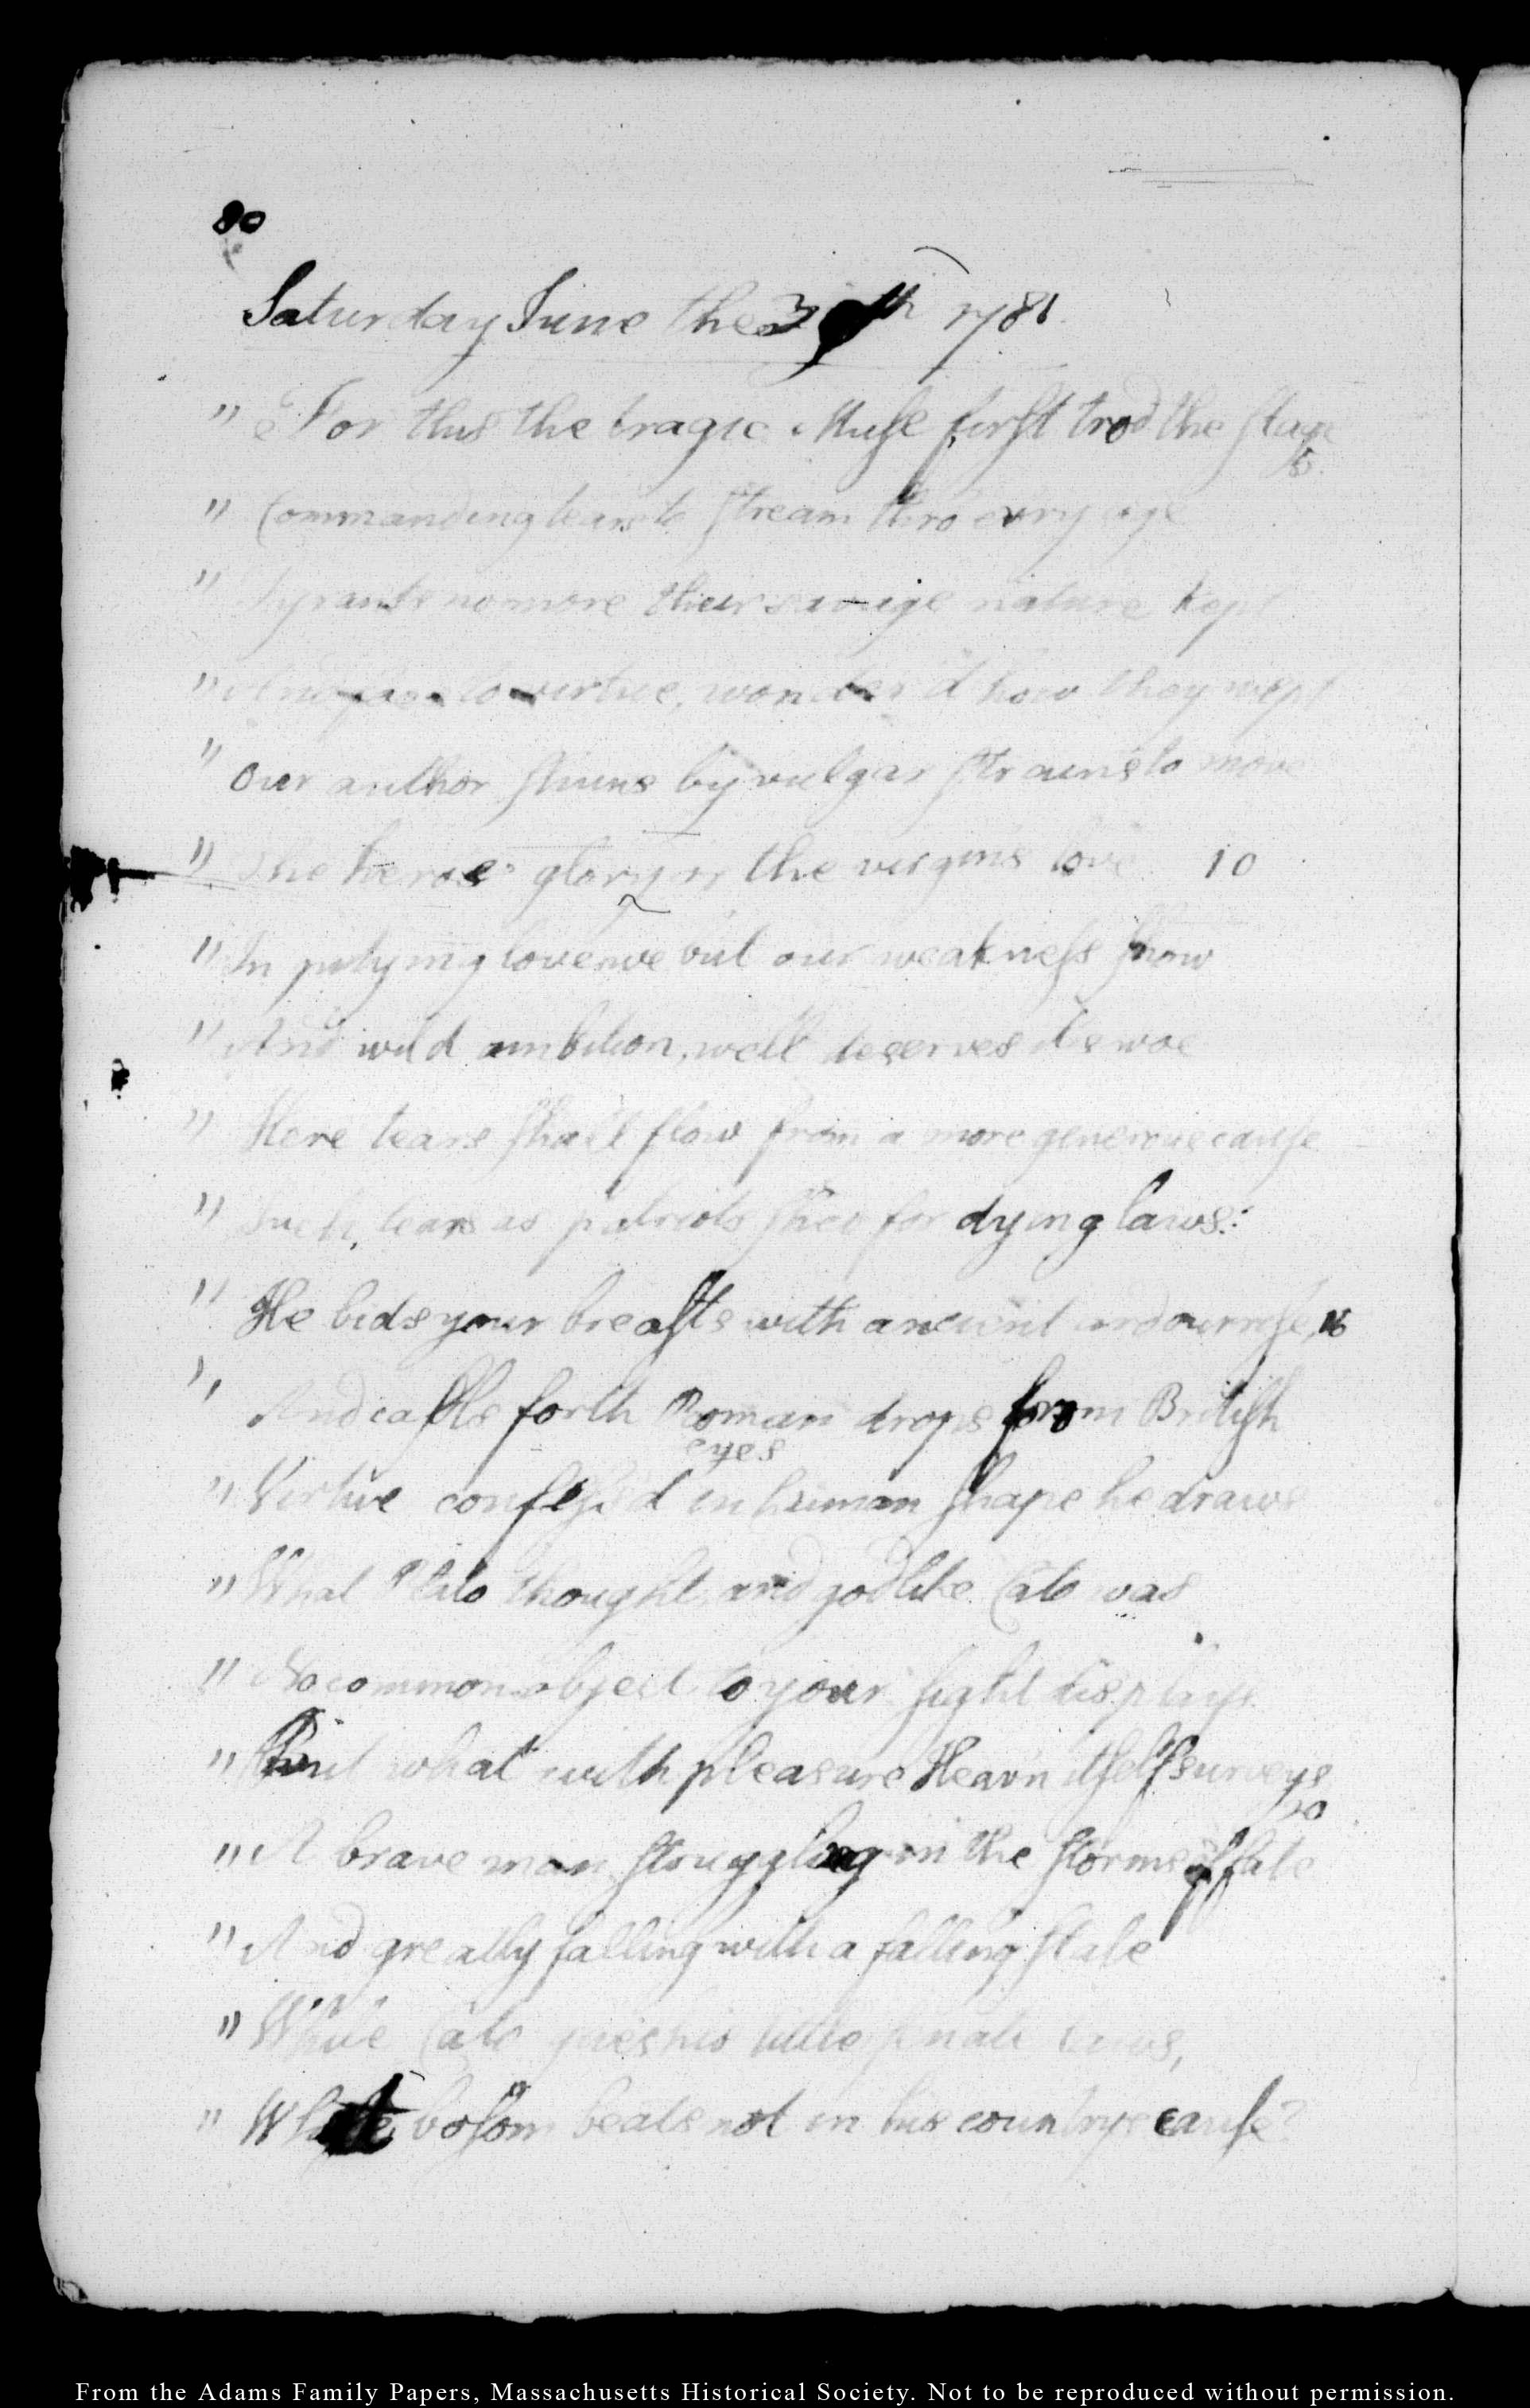 80
Saturday June the 30th 1781.
" For this the tragic Muse first trod the stage
5.
" Commanding tears to stream thro' every age
" Tyrants no more their savage nature kept
" And foes to virtue, wonder'd how they wept
" Our author shuns by vulgar strains to move
" The heroes glory or the virgins love 10
" In pitying love we but our weakness show
" And wild ambition, well deserves its woe
" Here tears shall flow from a more generous cause
" Such tears as patriots shed for dying laws:
" He bids your breasts with ancient ardour rise, 15
" And calls forth Roman drops from British
eyes
" Virtue confess'd in human shape he draws
" What Plato thought, and godlike Cato was
" No common object to your sight displays
" But what with pleasure Heav'n itself surveys
20
" A brave man struggling in the storms of fate
" And greatly falling with a falling state
" While Cato gives his little senate laws,
" What bosom beats not in his countrys cause?
From the Adams Family Papers, Massachusetts Historical Society. Not to be reproduced without permission.